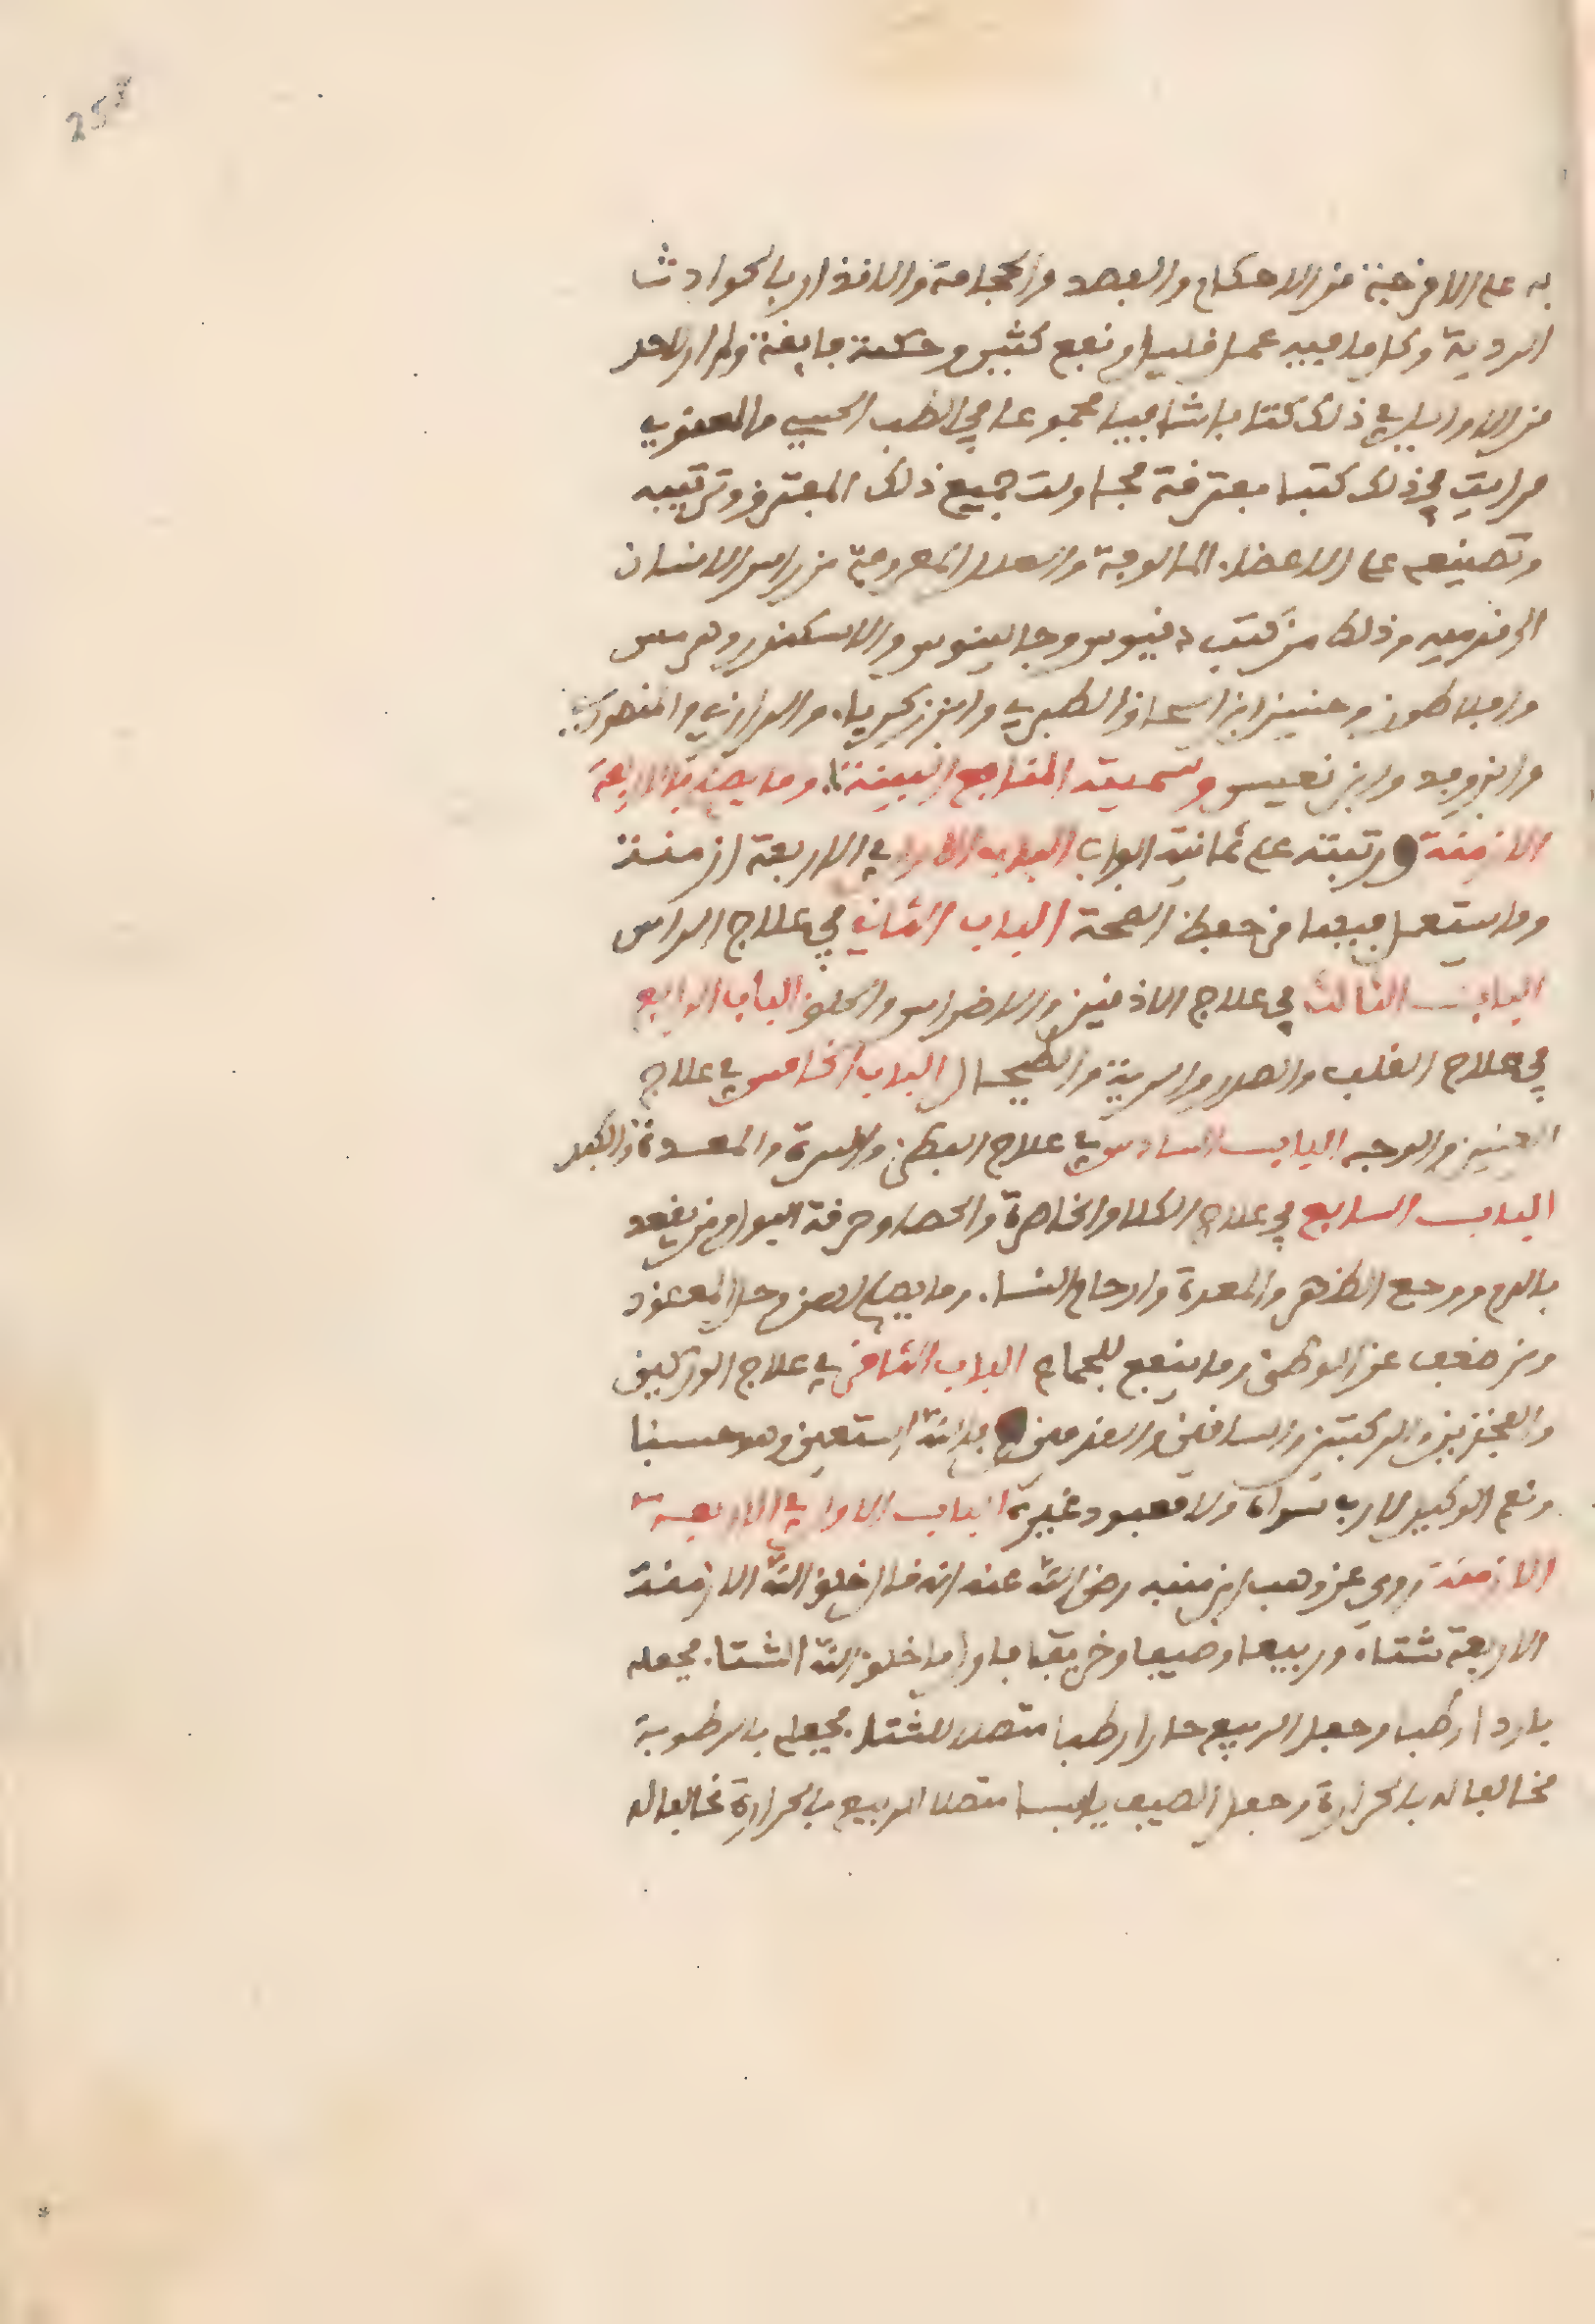 253
به على الامزجة من الاحكام والفصد والحجامة والانذار بالحوادث
الردية وكل ما فيه عمل قليل ونفع كثير وحكمة بالغة ولم ار لاحد
من الاوايل في ذلك كتابا شافيا مجموعا في الطب الحسي والمعنوي
ورايت في ذلك كتبا مفترقة فحاولت جميع ذلك المفترق وترتيبه
وتصنيفه على الاعضاء المالوفة والعلل المعروفة من راس الانسان
الى قدميه وذلك من كتب دنيوس وجالينوس والاسكندر وهرمس
وافلاطون وحنين ابن اسحاق والطبري وابن زكرياء والرازي والمنصوري
وابن وبد وابن نفيس وسميته المنافع البينة وما يصلح بالاربعة
الازمنة ورتبته على ثمانية ابواب الباب الاول في الاربعة ازمنة
وما يستعمل فيها من حفظ الصحة الباب الثاني في علاج الراس
الباب الثالث في علاج الاذنين والاضراس والحلق الباب الرابع
في علاج القلب والصدر والرية والطيحال الباب الخامس في علاج
العينين والوجه الباب السادس في علاج البطن والسرة والمعدة والكبد
الباب السابع في علاج الكلا والخاصرة والحصا وحرقة البول ومن يقعد
بالدم ووجع الظهر والمعدة وارحام النساء وما يصلح لهن وحل المعقود
ومن ضعف عن الوطئ وما ينفع للجماع الباب الثامن في علاج الوركين
والعجزين والركبتين والساقين والقدمين وبالله استعين وهو حسبنا
ونعم الوكيل لا رب سواه ولا معبود غيره الباب الاول في الاربعة
الازمنة روي عن وهب ابن منبه رضي الله عنه انه قال خلق الله الازمنة
الاربعة شتاء وربيعا وصيفا وخريفا فاول ما خلق الله الشتاء فجعله
باردا رطبا وجعل الربيع حارا رطبا متصلا للشتاء فجعله بالرطوبة
مخالفا له بالحرارة وجعل الصيف يابسا متصلا الربيع بالحرارة مخالفا له